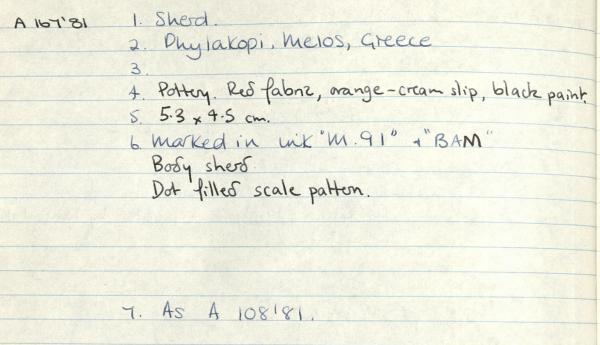 A 167'81
1. Sherd.
2. Phylakopi, Melos, Greece
3.
4. Pottery. Red fabric, orange-cream slip, black paint.
5. 5.3 x 4.5 cm.
6. Marked in ink "M.91" + "BAM"
Body sherd.
Dot filled scale pattern.
7. As A 108'81.